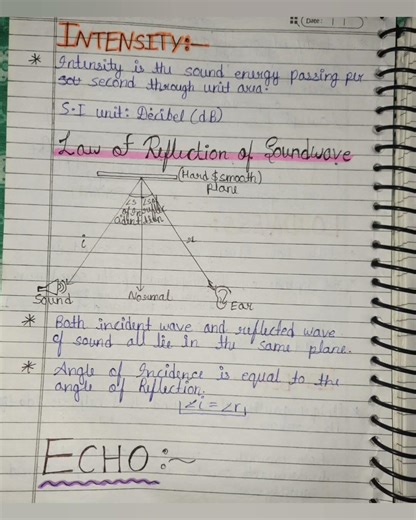 Date:
INTENSITY:-
* Intensity is the sound energy passing per
second through unit area.
S.I unit: Decibel (dB)
Law of Reflection of Soundwave
(Hard & smooth)
plane
i
r
Sound
Normal
Ear
* Both incident wave and reflected wave
of sound all lie in the same plane.
* Angle of Incidence is equal to the
angle of Reflection.
∠i = ∠r
ECHO:~